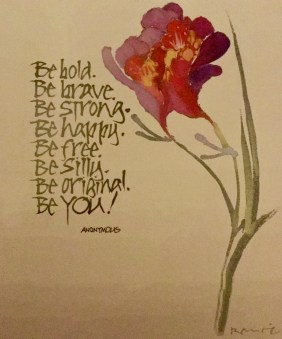 Be bold.
Be brave.
Be strong.
Be happy.
Be free.
Be silly.
Be original.
Be YOU!
ANONYMOUS